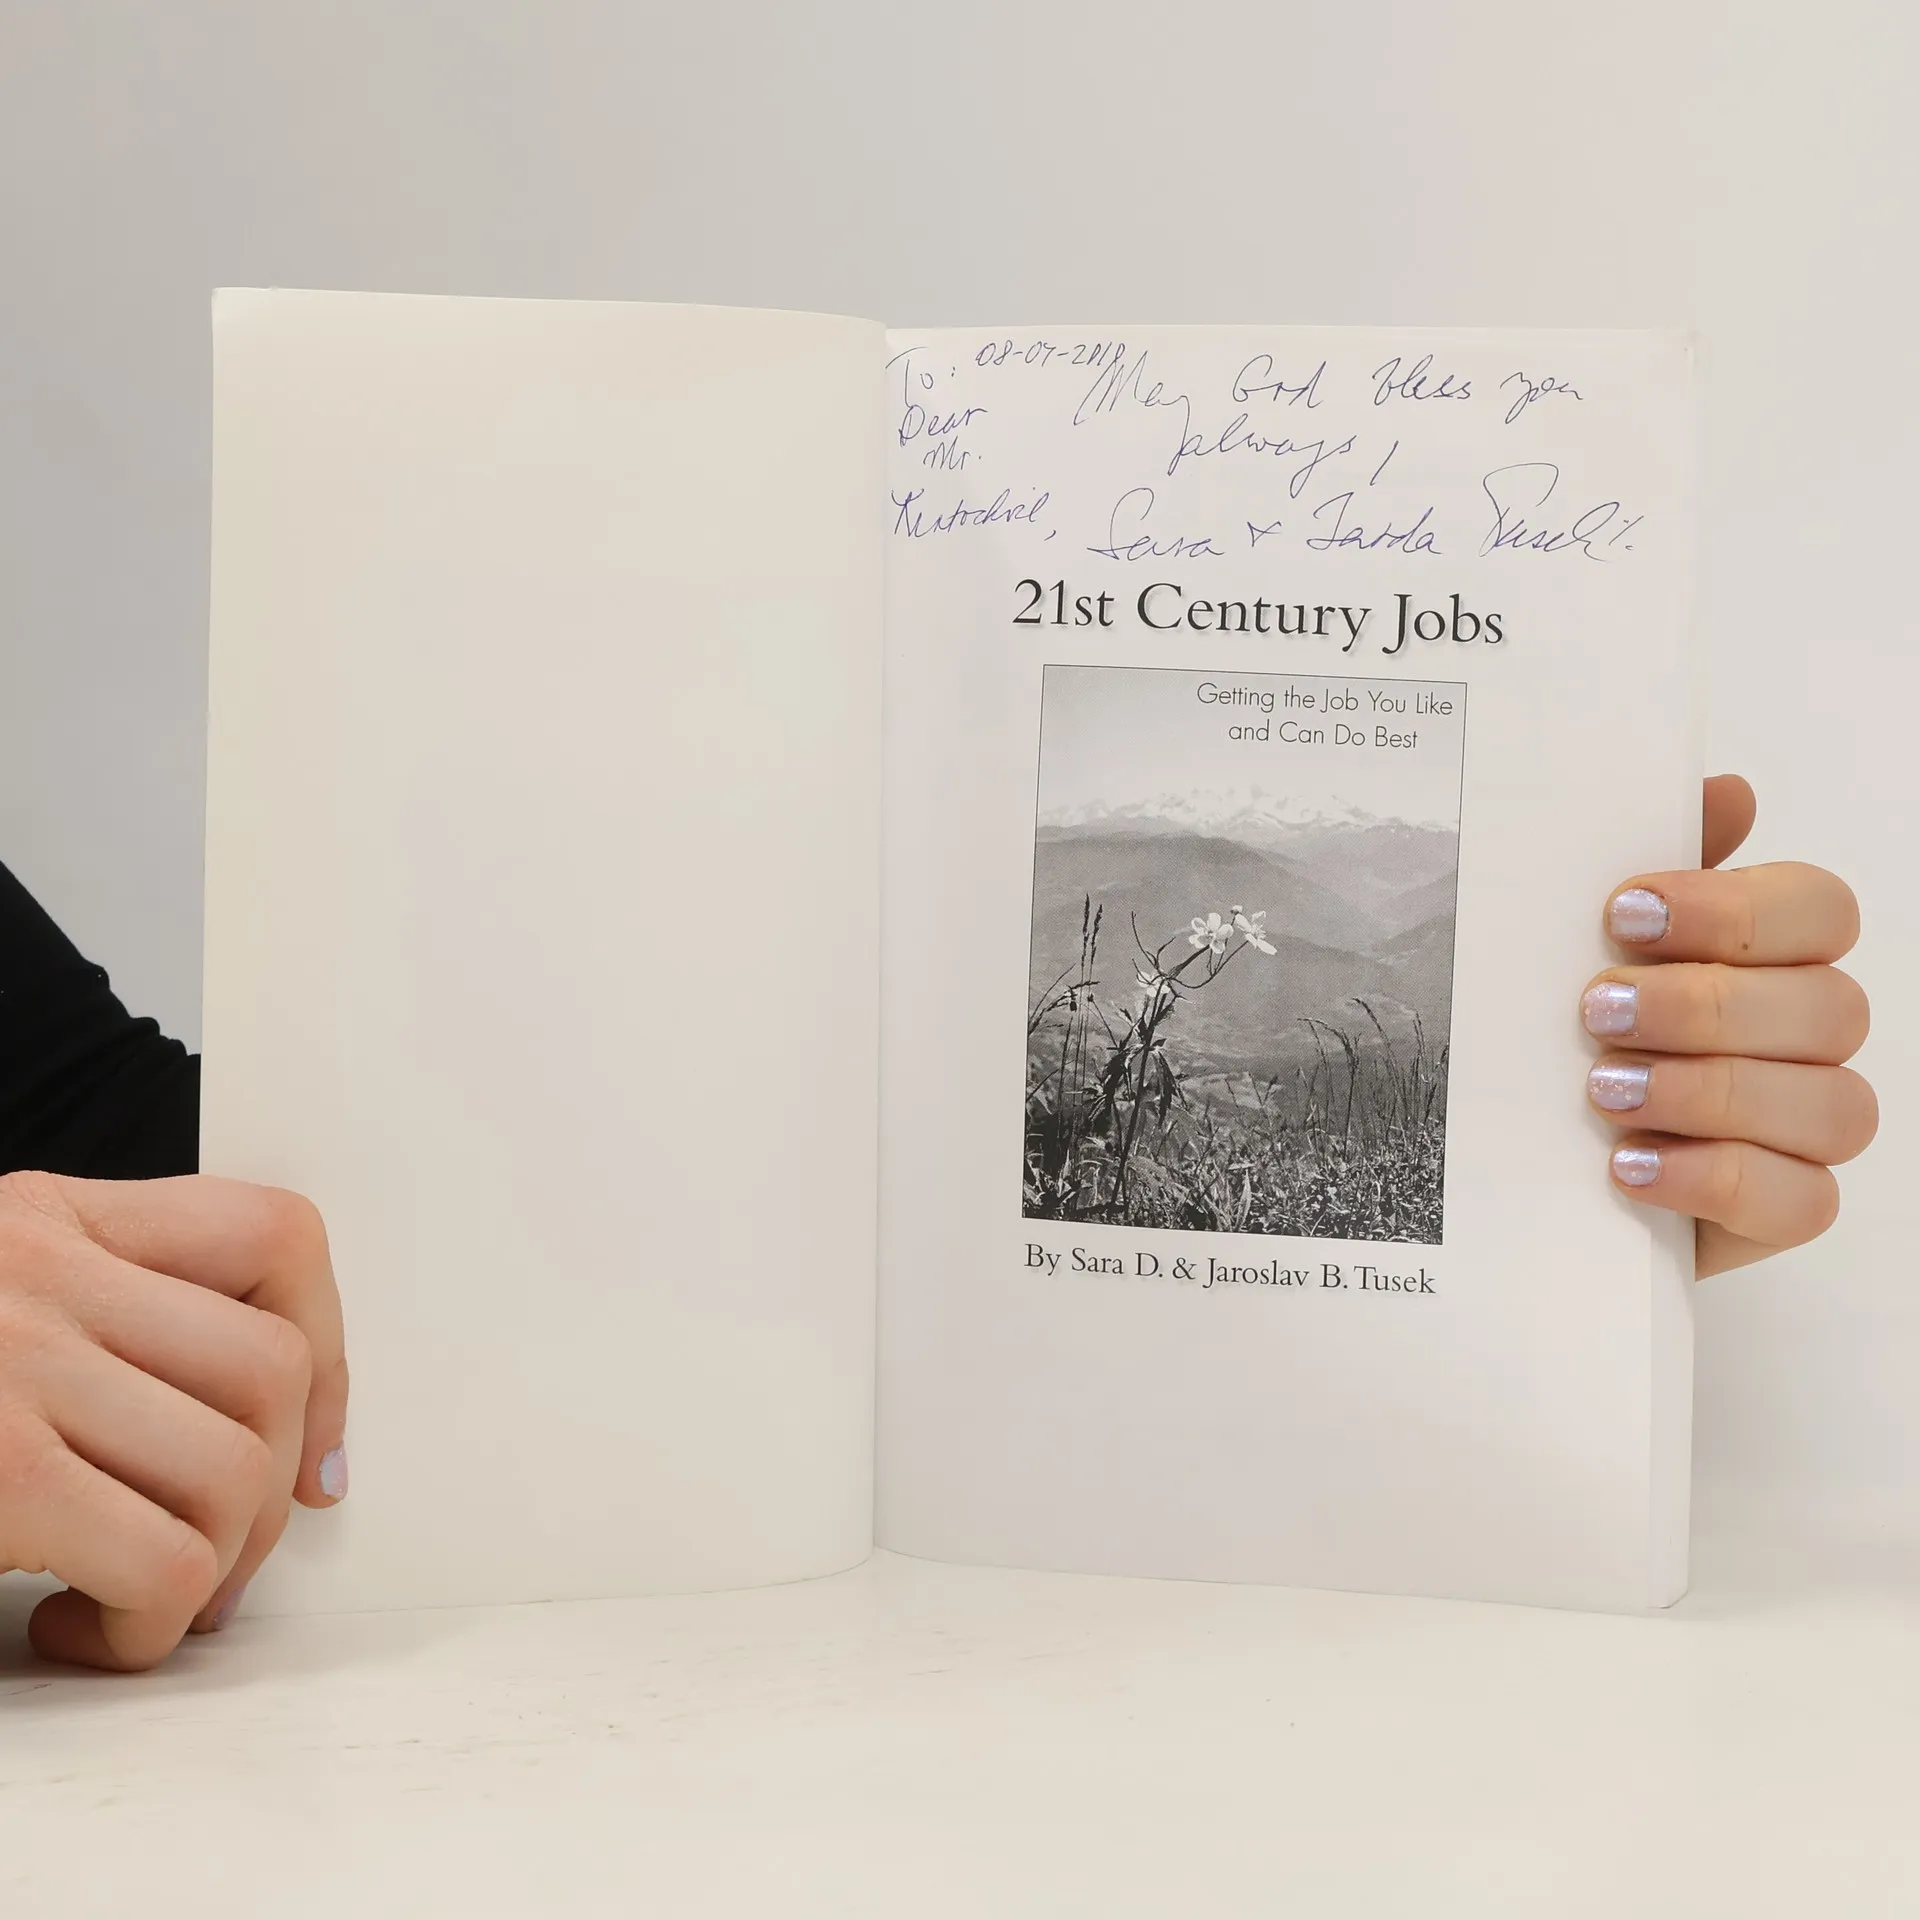 To: 08-07-2010
Dear
Mr.
May God bless you
always,
Sara & Jarda Tusek
21st Century Jobs
Getting the Job You Like
and Can Do Best
By Sara D. & Jaroslav B. Tusek